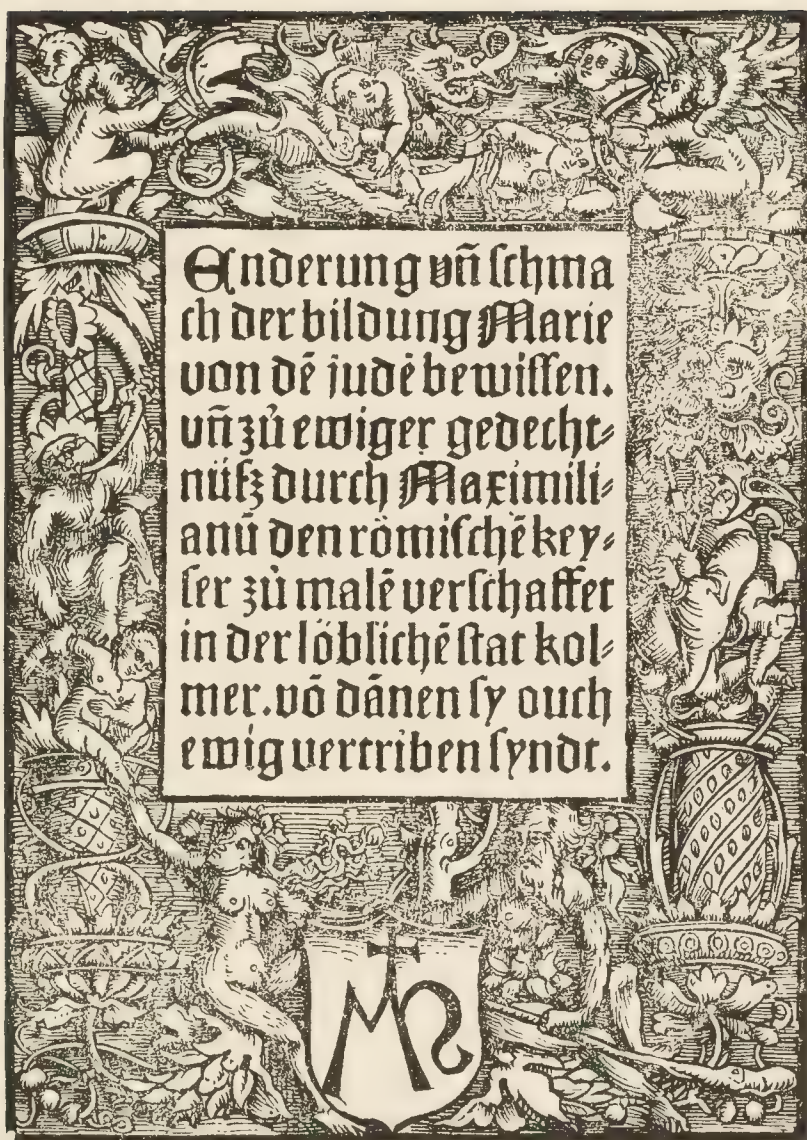 Enderung vñ schma
ch der bildung Marie
von dē judē bewissen.
vñ zů ewiger gedecht⸗
nüsz durch Maximili⸗
anū den römischē key⸗
ser zů malē verschaffet
in der löblichē stat kol⸗
mer. vō dānen sy ouch
ewig vertriben syndt.